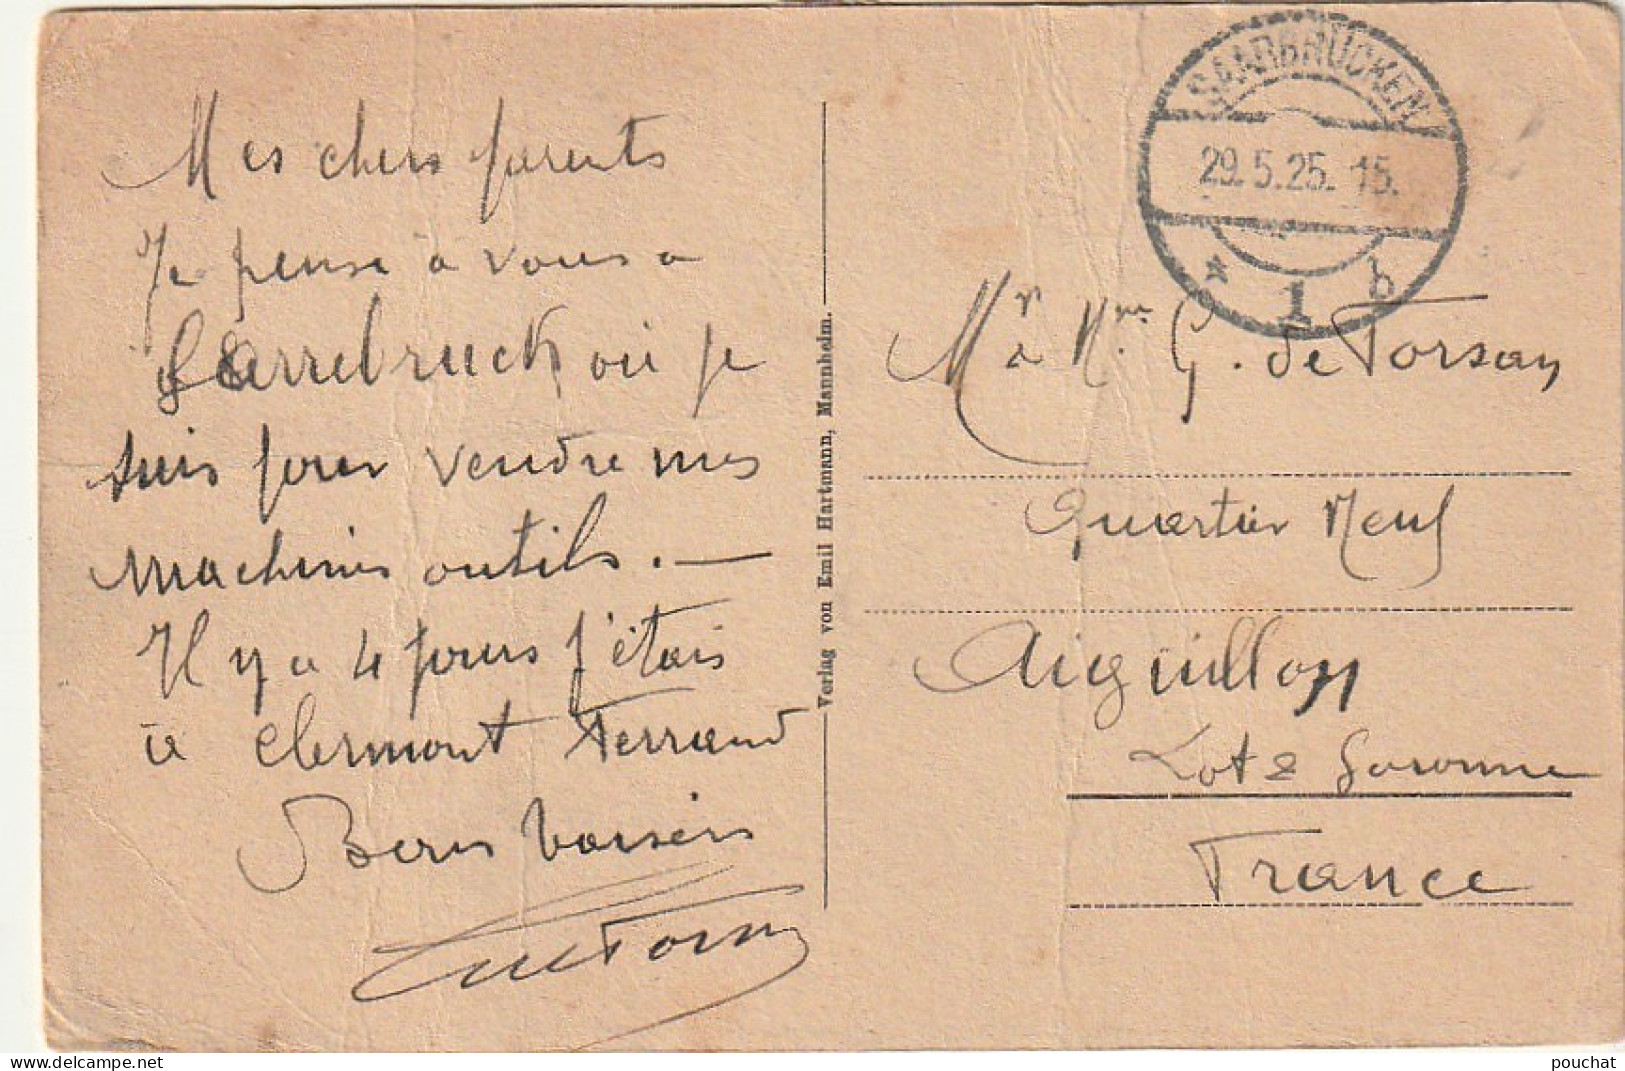 Mes chers parents
Je pense à vous a
Sarrebruck où je
suis pour vendre mes
machines outils. —
Il y a 4 jours j'étais
à Clermont Ferrand
Bons baisers
Verlag von Emil Hartmann, Mannheim.
SAARBRÜCKEN
29.5.25. 15.
* 1 b
Mr & Mme G. de Torsay
Quartier Neuf
Aiguillon
Lot & Garonne
France
pouchat